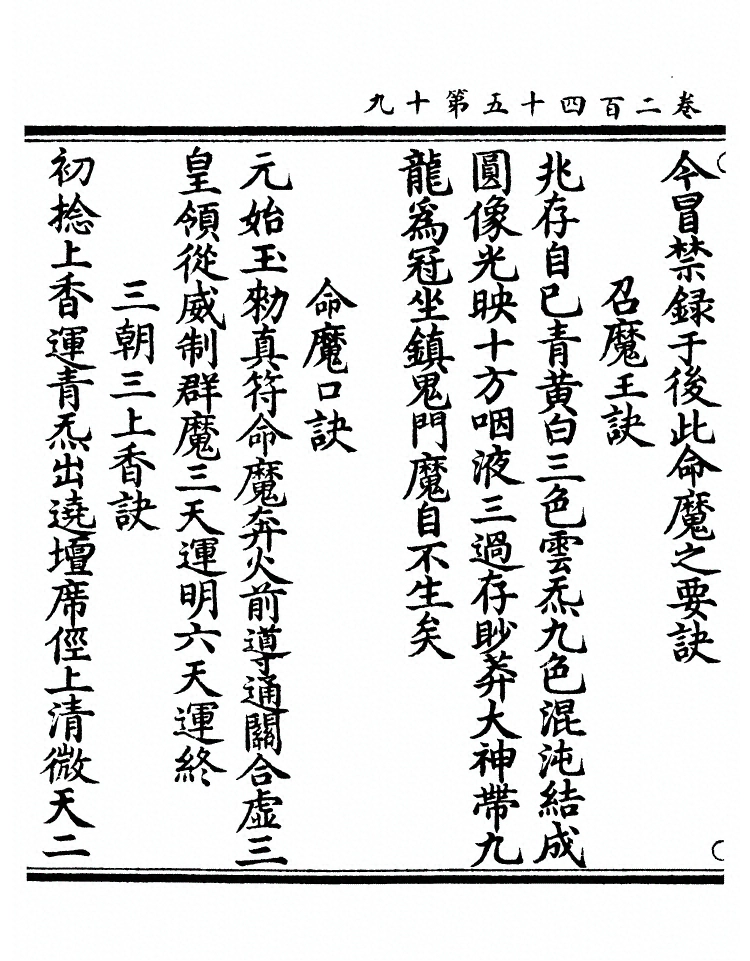 卷二百四十五第十九
今冒禁録于後此命魔之要訣
召魔王訣
兆存自己青黄白三色雲炁九色混沌結成
圓像光映十方咽液三過存眇莽大神帶九
龍爲冠坐鎮鬼門魔自不生矣
命魔口訣
元始玉勑真符命魔奔火前導通關合虚三
皇領從威制群魔三天運明六天運終
三朝三上香訣
初捻上香運青炁出遶壇席徑上清微天二